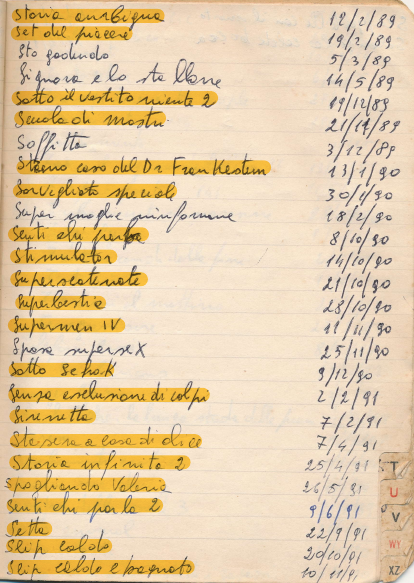 Storia ambigua 12/2/89
Set del piacere 19/2/89
Sto godendo 5/3/89
Signora e lo stallone 14/5/89
Sotto il vestito niente 2 19/12/89
Scuola di mostri 21/12/89
Soffitta 3/12/89
Strano caso del Dr Frankestein 13/1/90
Sorvegliato speciale 30/1/90
Super moglie ninfomane 18/2/90
Senti chi parla 8/10/90
Stimulator 14/10/90
Superscatenate 21/10/90
Superbestia 28/10/90
Supermen IV 11/11/90
Sposa supersex 25/11/90
Sotto 9/12/90
Senza esclusione di colpi 2/2/91
Sirenetta 7/2/91
Stasera a casa di Alice 7/4/91
Storia infinita 2 25/4/91
Spogliando Valeria 26/5/91
Senti chi parla 2 9/6/91
Setta 22/9/91
Slip caldo 20/10/91
Slip caldo e bagnato 10/11/91
T
U
V
WY
XZ